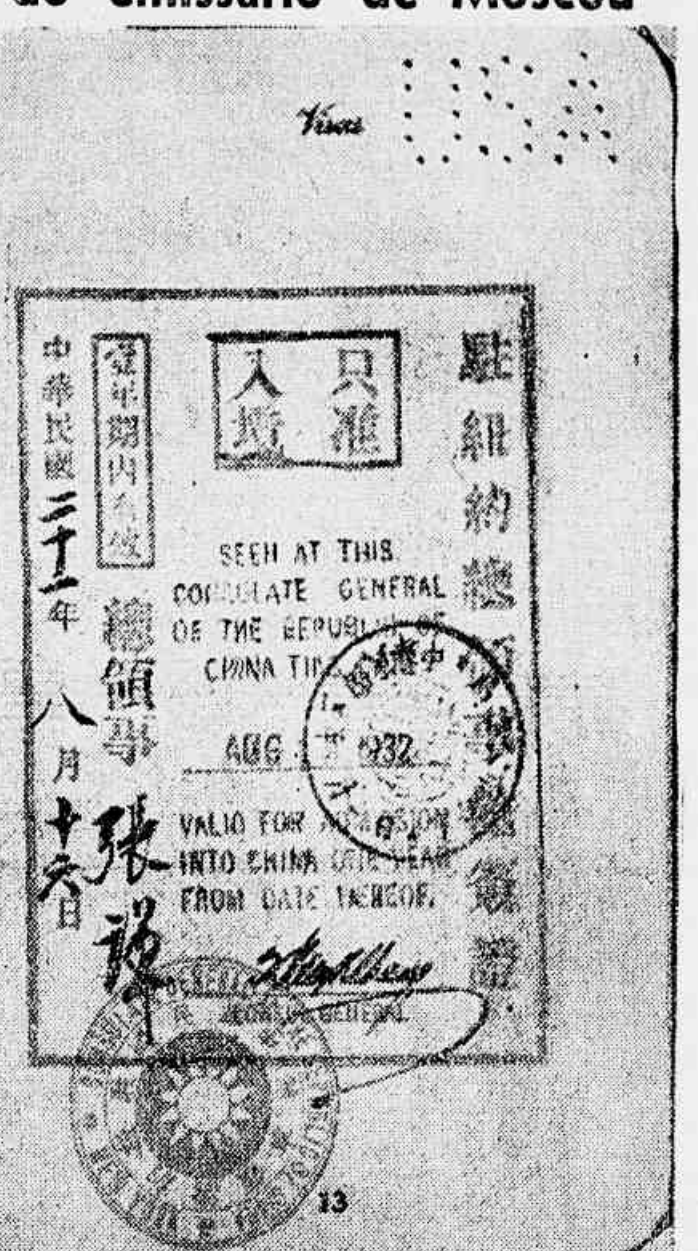 do emissario de Moscou
Visas
USA
駐紐約總領事館簽證
只准
入境
SEEN AT THIS
CONSULATE GENERAL
OF THE REPUBLIC OF
CHINA THIS
AUG 1932
VALID FOR ADMISSION
INTO CHINA ONE YEAR
FROM DATE HEREOF.
CONSUL GENERAL
壹年期內有效
總領事 張
中華民國二十一年八月十六日
13